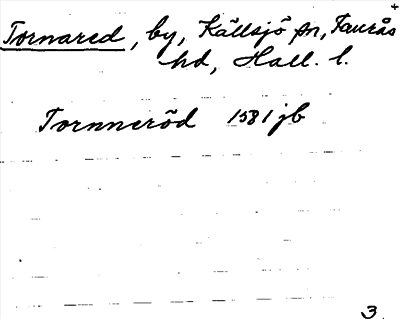 Tornared, by, Källsjö sn, Faurås
hd, Hall. l.
Tornneröd 1581 jb
3.